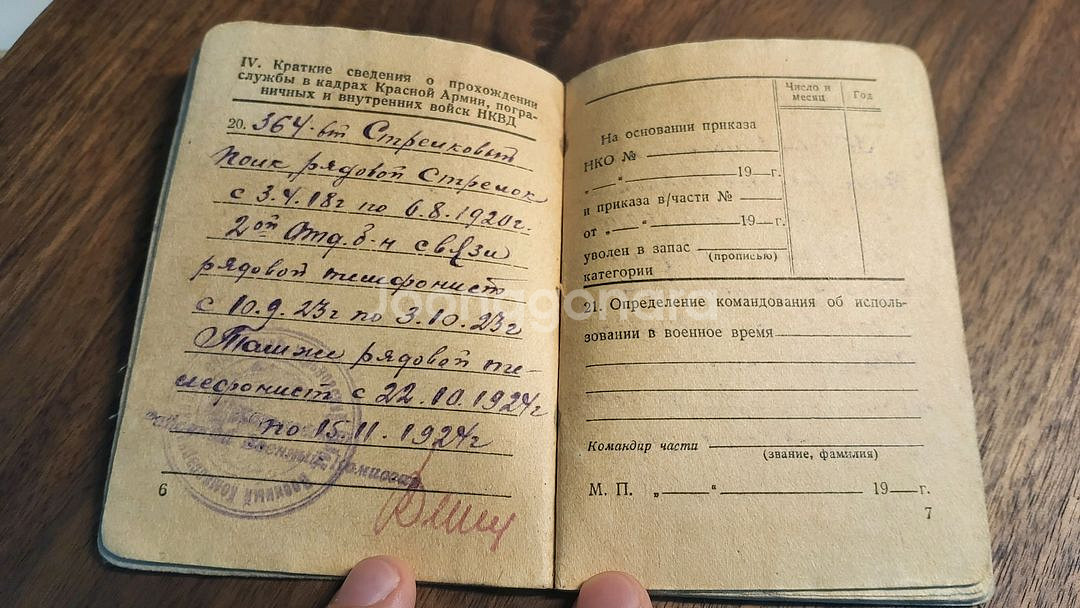 IV. Краткие сведения о прохождении
службы в кадрах Красной Армии, погра-
ничных и внутренних войск НКВД
20. 364-ый Стрелковый
полк, рядовой Стрелок
с 3.4.18г по 6.8.1920г.
2ой Отд. б-н связи
рядовой телефонист
с 10.9.23г по 3.10.23г
Там же рядовой те-
лефонист с 22.10.1924г
по 15.11.1924г
6
Число и
месяц
Год
На основании приказа
НКО №
„ “ 19 г.
и приказа в/части №
от „ “ 19 г.
уволен в запас
(прописью)
категории
21. Определение командования об исполь-
зовании в военное время
Командир части
(звание, фамилия)
М. П. „ “ 19 г.
7
Joonagonara